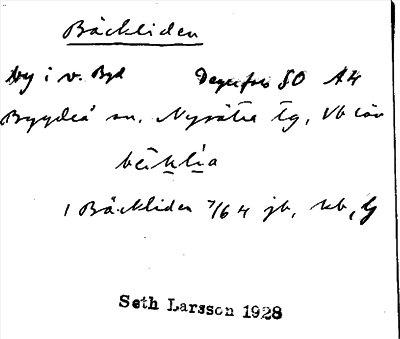 Bäckliden
by i v. Byd Degerfors SO A4
Bygdeå sn. Nysätra tg, Vb län
1 Bäckliden 7/64 jb, kb, lj
Seth Larsson 1928